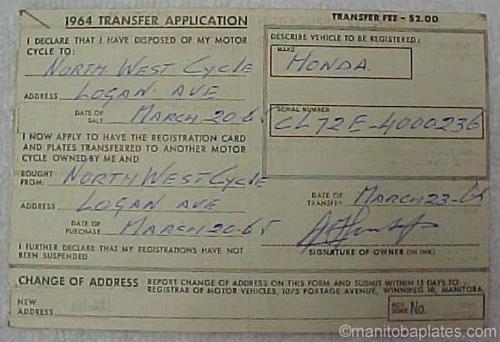 1964 TRANSFER APPLICATION
TRANSFER FEE - $2.00
I DECLARE THAT I HAVE DISPOSED OF MY MOTOR
CYCLE TO:
NORTH WEST CYCLE
ADDRESS LOGAN AVE
DATE OF
SALE MARCH 20-65
I NOW APPLY TO HAVE THE REGISTRATION CARD
AND PLATES TRANSFERRED TO ANOTHER MOTOR
CYCLE OWNED BY ME AND
BOUGHT
FROM: NORTH WEST CYCLE
ADDRESS LOGAN AVE
DATE OF
PURCHASE MARCH 20-65
I FURTHER DECLARE THAT MY REGISTRATIONS HAVE NOT
BEEN SUSPENDED
DESCRIBE VEHICLE TO BE REGISTERED:
MAKE
HONDA
SERIAL NUMBER
CL72E-4000236
DATE OF
TRANSFER MARCH 23-65
SIGNATURE OF OWNER (IN INK)
CHANGE OF ADDRESS
REPORT CHANGE OF ADDRESS ON THIS FORM AND SUBMIT WITHIN 15 DAYS TO
REGISTRAR OF MOTOR VEHICLES, 1075 PORTAGE AVENUE, WINNIPEG 10, MANITOBA.
NEW
ADDRESS
No.
©manitobaplates.com